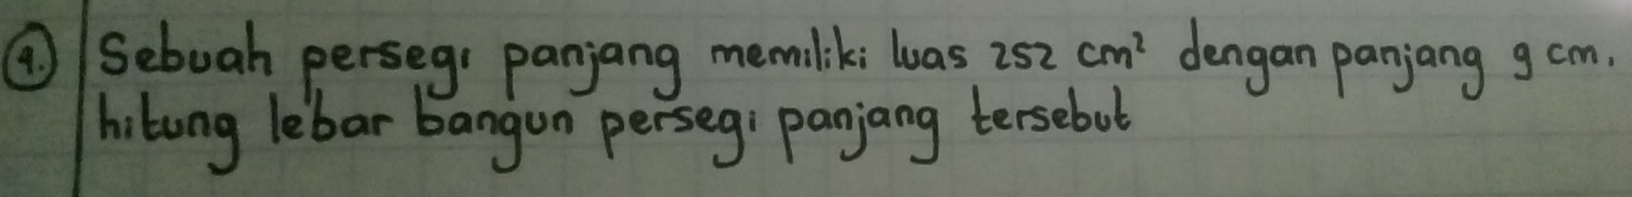 4. Sebuah persegi panjang memiliki luas 252 cm² dengan panjang 9 cm.
hitung lebar bangun persegi panjang tersebut